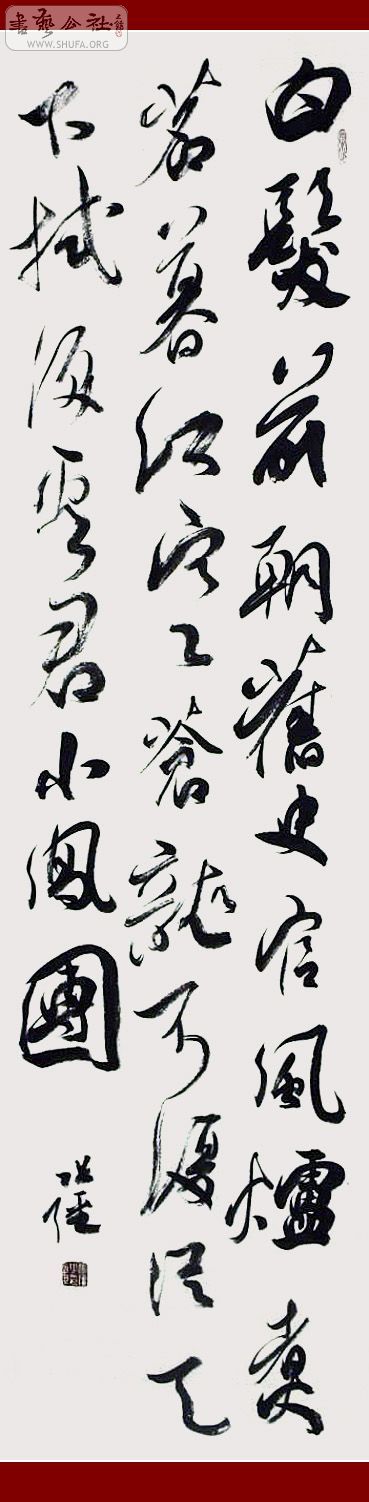 書藝公社
WWW.SHUFA.ORG
白髮前朝舊史官風爐煮
茗暮江寒蒼龍不復從天
下拭淚看君小鳳團